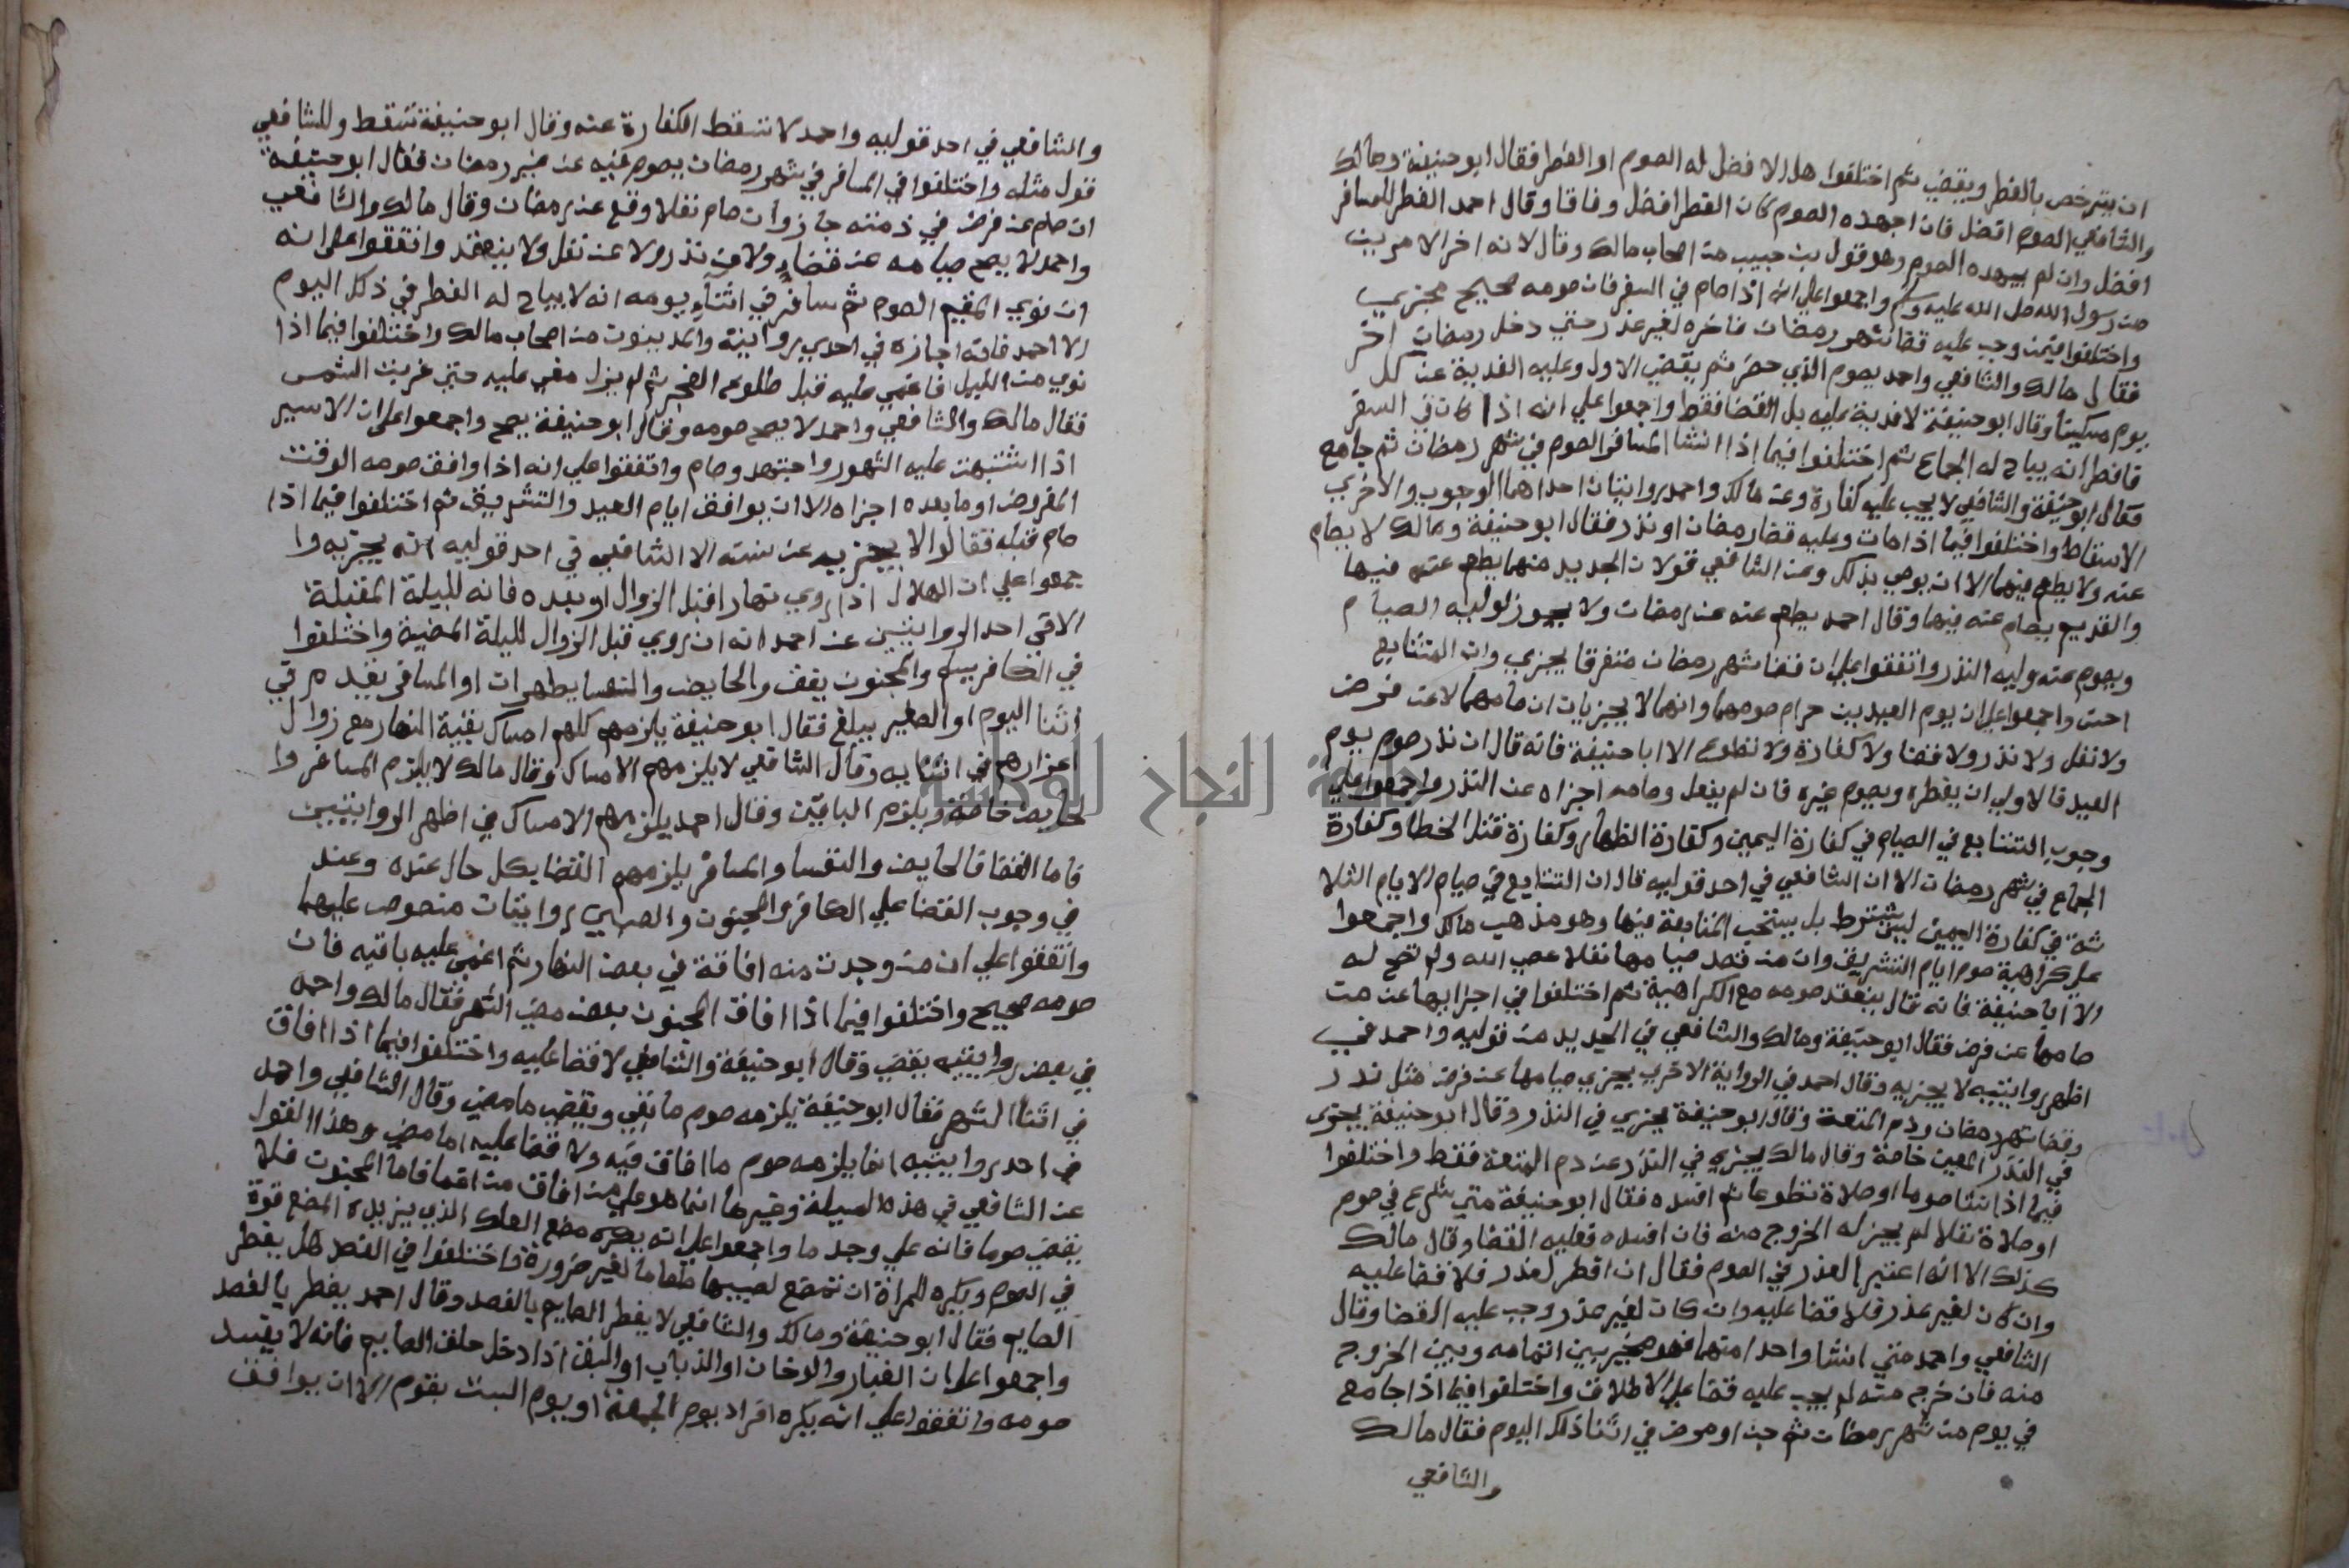 ان يترخص بالفطر ويقضي ثم اختلفوا هل الافضل له الصوم او الفطر فقال ابو حنيفة ومالك
والشافعي الصوم افضل فان اجهده الصوم كان الفطر افضل وفاقا وقال احمد الفطر للمسافر
افضل وان لم يجهده الصوم وهو قول بن حبيب من اصحاب مالك وقال لانه اخر الامرين
من رسول الله صلى الله عليه وسلم واجمعوا علي انه اذا صام في السفر فان صومه صحيح مجزي
واختلفوا فيمن وجب عليه قضا شهر رمضان فاخره لغير عذر حتي دخل رمضان اخر
فقال مالك والشافعي واحمد يصوم الذي حضر ثم يقضي الاول وعليه الفدية عن كل
يوم مسكينا وقال ابو حنيفة لا فدية عليه بل القضا فقط واجمعوا علي انه اذا كان في السفر
فافطر انه يباح له الجماع ثم اختلفوا فيما اذا انشا المسافر الصوم في شهر رمضان ثم جامع
فقال ابو حنيفة والشافعي لا يجب عليه كفارة وعن مالك واحمد روايتان احداهما الوجوب والاخري
الاسقاط واختلفوا فيما اذا مات وعليه قضا رمضان او نذر فقال ابو حنيفة ومالك لا يصام
عنه ولا يطعم فيهما الا ان يوصي بذلك وعن الشافعي قولان الجديد منهما يطعم عنه فيهما
والقديم يصام عنه فيها وقال احمد يطعم عنه عن رمضان ولا يجوز لوليه الصيام
ويصوم عنه وليه النذر واتفقوا علي ان قضا شهر رمضان متفرقا يجزي وان المتتابع
احسن واجمعوا علي ان يوم العيدين حرام صومهما وانهما لا يجزيان ان صامهما لا عن فرض
ولا نفل ولا نذر ولا قضا ولا كفارة ولا تطوع الا ابا حنيفة فانه قال ان نذر صوم يوم
العيد فالاولي ان يفطره ويصوم غيره فان لم يفعل وصامه اجزاه عن النذر واجمعوا علي
وجوب التتابع في الصيام في كفارة اليمين وكفارة الظهار وكفارة قتل الخطا وكفارة
الجماع في شهر رمضان الا ان الشافعي في احد قوليه قال ان التتابع في صيام الايام الثلا
ثة في كفارة اليمين ليس يشترط بل يستحب المتابعة فيها وهو مذهب مالك واجمعوا
علي كراهية صوم ايام التشريق وان من قصد صيامها نفلا عصي الله ولم تصح له
الا ابا حنيفة فانه قال ينعقد صومه مع الكراهية ثم اختلفوا في اجزايها عن من
صامها عن فرض فقال ابو حنيفة ومالك والشافعي في الجديد من قوليه واحمد في
اظهر روايتيه لا يجزيه وقال احمد في الرواية الاخري يجزي صيامها عن فرض مثل نذر
وقضا شهر رمضان ودم المتعة وقال ابو حنيفة يجزي في النذر وقال ابو حنيفة يجزي
في النذر المعين خاصة وقال مالك يجزي في النذر عن دم المتعة فقط واختلفوا
فيما اذا انشا صوما او صلاة تطوعا ثم افسده فقال ابو حنيفة متي شرع في صوم
او صلاة نفلا لم يجز له الخروج منه فان افسده فعليه القضا وقال مالك
كذلك الا انه اعتبر العذر في الصوم فقال ان افطر لعذر فلا قضا عليه
وان كان لغير عذر فلا قضا عليه وان كان لغير عذر وجب عليه القضا وقال
الشافعي واحمد متي انشا واحدا منهما فهو مخير بين اتمامه وبين الخروج
منه فان خرج منه لم يجب عليه قضا علي الاطلاق واختلفوا فيما اذا جامع
في يوم من شهر رمضان ثم جن او مرض في اثنا ذلك اليوم فقال مالك
والشافعي
والشافعي في احد قوليه واحمد لا تسقط الكفارة عنه وقال ابو حنيفة تسقط وللشافعي
قول مثله واختلفوا في المسافر في شهر رمضان يصوم بنيه عن غير رمضان فقال ابو حنيفة
ان صام عن فرض في ذمته جاز وان صام نفلا وقع عن رمضان وقال مالك والشافعي
واحمد لا يصح صيامه عن قضا ولا عن نذر ولا عن نفل ولا ينعقد واتفقوا علي انه
ان نوي المقيم الصوم ثم سافر في اثناء يومه انه لا يباح له الفطر في ذلك اليوم
الا احمد فانه اجازه في احدي روايتيه والمدينون من اصحاب مالك واختلفوا فيما اذا
نوي من الليل فاغمي عليه قبل طلوع الفجر ثم لم يزل مغمي عليه حتي غربت الشمس
فقال مالك والشافعي واحمد لا يصح صومه وقال ابو حنيفة يصح واجمعوا علي ان الاسير
اذا اشتبهت عليه الشهور واجتهد وصام واتفقوا علي انه اذا وافق صومه الوقت
المفروض او ما بعده اجزاه الا ان يوافق ايام العيد والتشريق ثم اختلفوا فيما اذا
صام قبله فقالوا لا يجزيه عن سنته الا الشافعي في احد قوليه انه يجزيه وا
جمعوا علي ان الهلال اذا روي نهارا قبل الزوال او بعده فانه لليلة المقبلة
الا في احد الروايتين عن احمد انه ان روي قبل الزوال لليلة الماضية واختلفوا
في الكافر يسلم والمجنون يفيق والحايض والنفسا يطهران او المسافر يقدم في
اثنا اليوم او الصغير يبلغ فقال ابو حنيفة يلزمهم كلهم امساك بقية النهار مع زوال
اعذارهم في اثنايه وقال الشافعي لا يلزمهم الامساك وقال مالك لا يلزم المسافر وا
لحايض خاصة ويلزم الباقين وقال احمد يلزمهم الامساك في اظهر الروايتين
فاما القضا فالحايض والنفسا والمسافر يلزمهم القضا بكل حال عنده وعند
في وجوب القضا علي الكافر والمجنون والصبي روايتان منصوص عليهما
واتفقوا علي ان من وجدت منه افاقة في بعض النهار ثم اغمي عليه باقيه فان
صومه صحيح واختلفوا فيما اذا افاق المجنون بعض مضي الشهر فقال مالك واحمد
في بعض روايتيه يقضي وقال ابو حنيفة والشافعي لا قضا عليه واختلفوا فيما اذا افاق
في اثنا الشهر فقال ابو حنيفة يلزمه صوم ما بقي ويقضي ما مضي وقال الشافعي واحمد
في احد روايتيه انما يلزمه صوم ما افاق فيه ولا قضا عليه لما مضي وهذا القول
عن الشافعي في هذه المسيلة وغيرها انما هو علي من افاق من اغما فاما المجنون فلا
يقضي صوما فانه علي وجد ما واجمعوا علي انه يكره مضغ العلك الذي يزيده المضغ قوة
في الصوم ويكره للمراة ان تمضغ لصبيها طعاما لغير ضرورة فاختلفوا في الفصد هل يفطر
الصايم فقال ابو حنيفة ومالك والشافعي لا يفطر الصايم بالفصد وقال احمد يفطر بالفصد
واجمعوا علي ان الغبار والدخان او الذباب او البق اذا دخل حلق الصايم فانه لا يفسد
صومه واتفقوا علي انه يكره افراد يوم الجمعة او يوم السبت بقوم الا ان يوافق
جامعة النجاح الوطنية